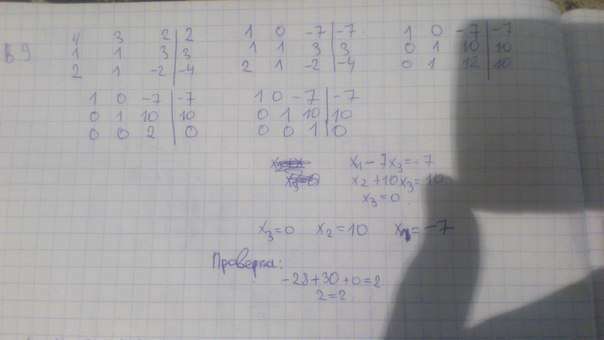 В 9
4 3 2 | 2   1 0 -7 | -7   1 0 -7 | -7
1 1 3 | 3   1 1 3 | 3   0 1 10 | 10
2 1 -2 | -4   2 1 -2 | -4   0 1 12 | 10
1 0 -7 | -7   1 0 -7 | -7
0 1 10 | 10   0 1 10 | 10
0 0 2 | 0   0 0 1 | 0
x₁-7x₃=-7
x₂+10x₃=10
x₃=0
x₃=0 x₂=10 x₁=-7
Проверка:
-28+30+0=2
2=2